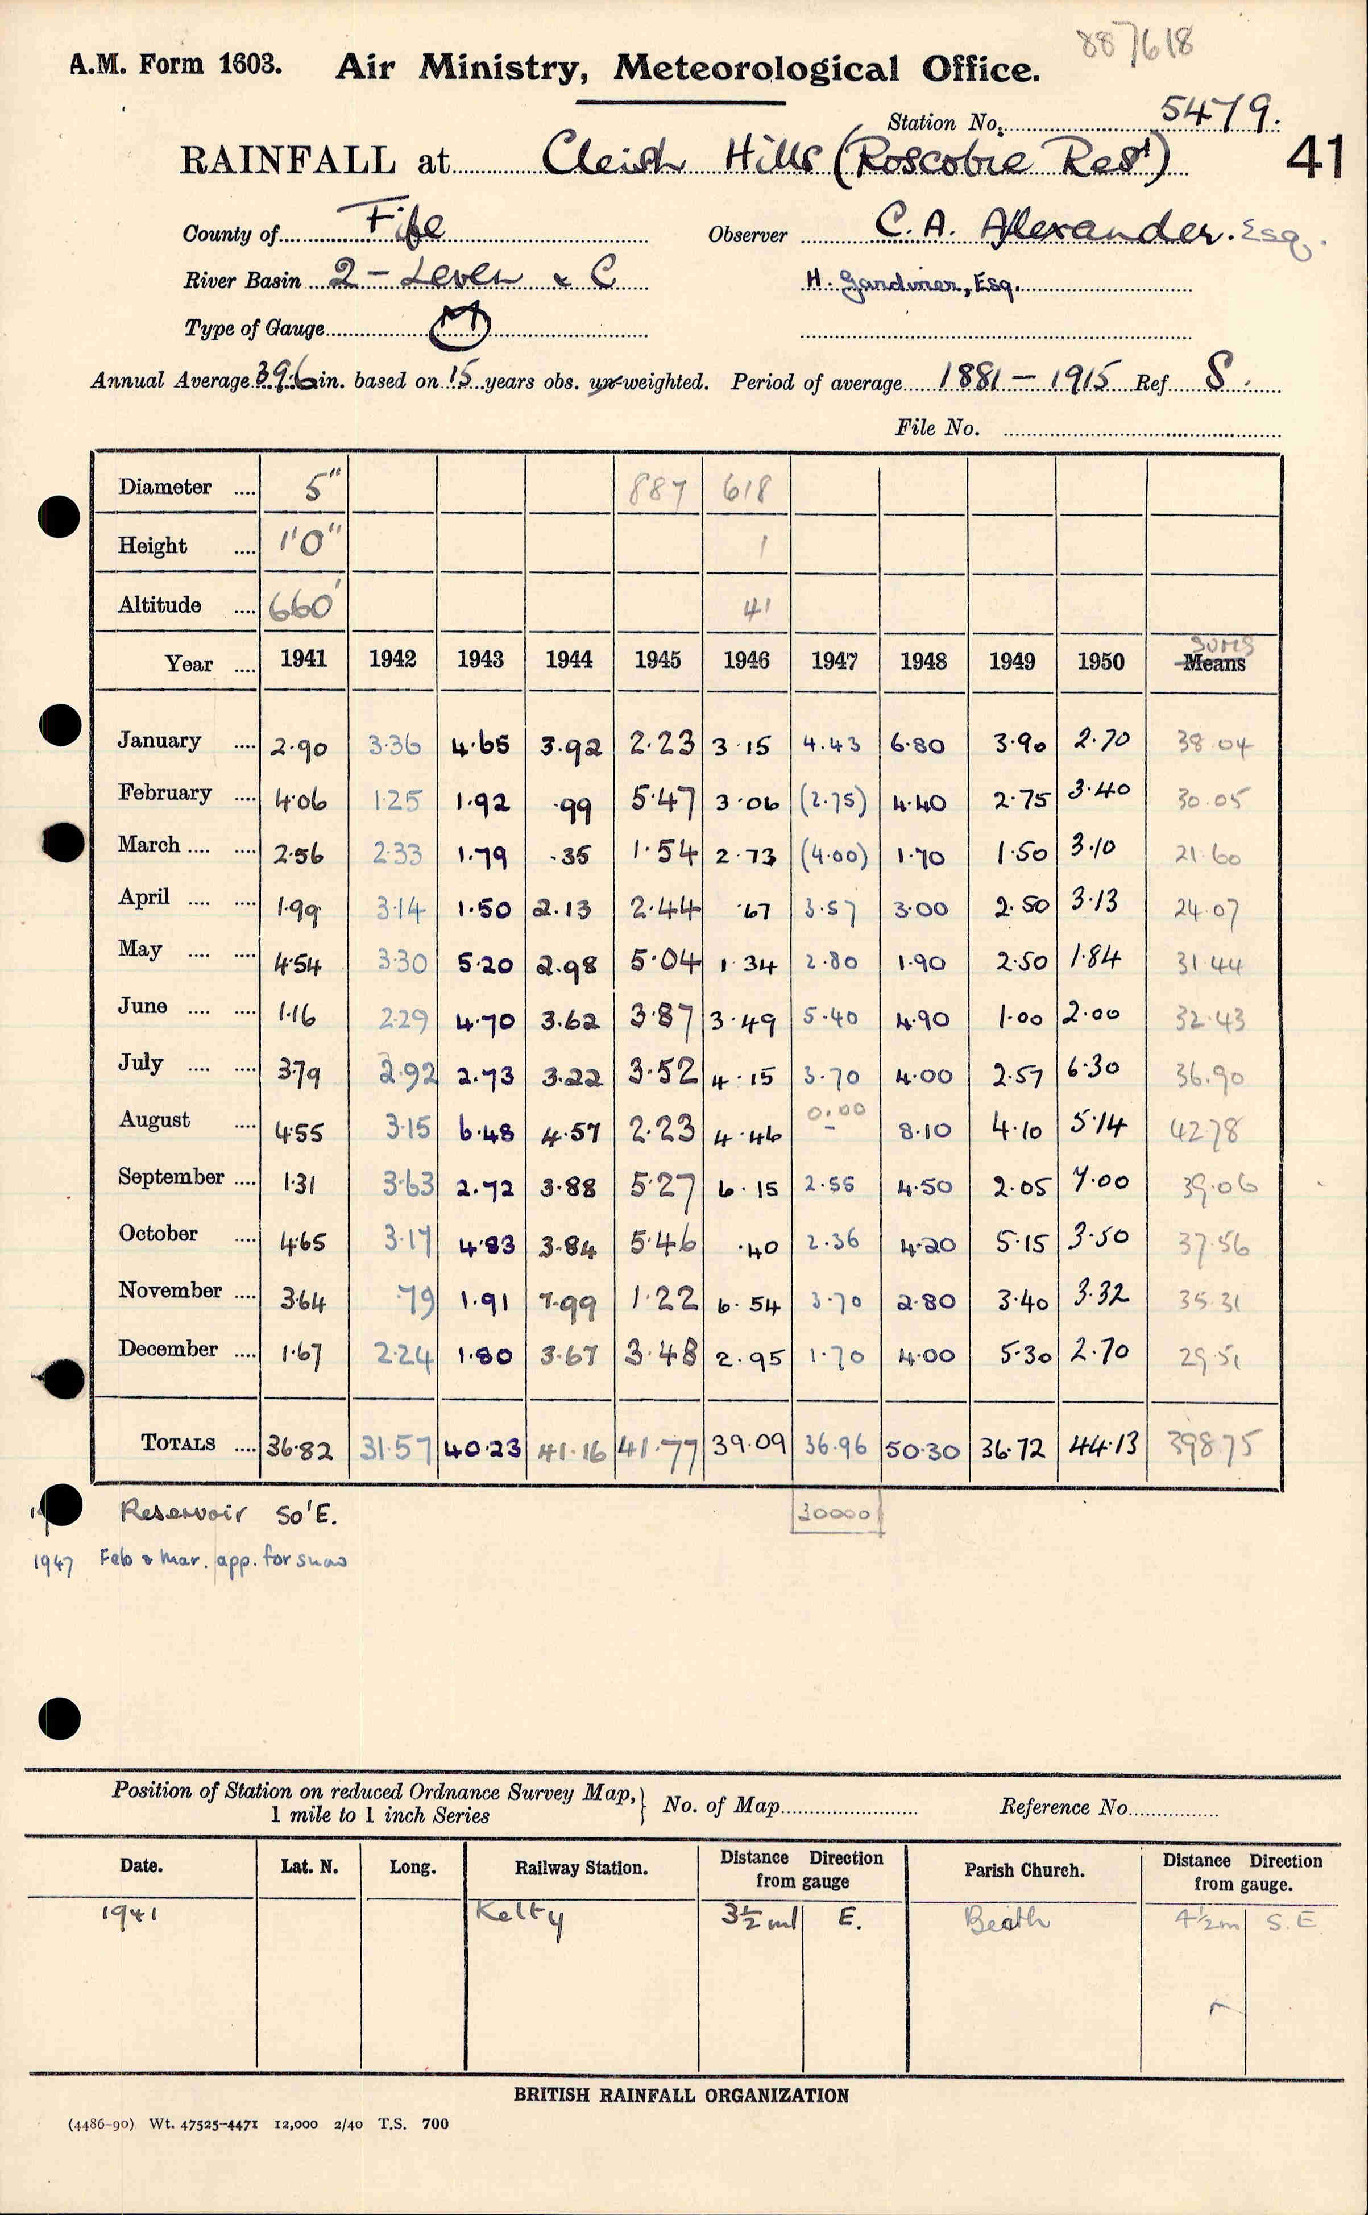 887618
A.M. Form 1603. Air Ministry, Meteorological Office.
Station No. 5479.
RAINFALL at Cleish Hills (Roscobie Resr) 41
County of Fife Observer C. A. Alexander. Esq.
River Basin 2 - Leven & C H. Gardiner, Esq.
Type of Gauge M
Annual Average 39.6 in. based on 15 years obs. un-weighted. Period of average 1881 - 1915 Ref S.
File No.
Diameter .... 5" 887 618
Height .... 1'0" 1
Altitude .... 660' 41
Year .... 1941 1942 1943 1944 1945 1946 1947 1948 1949 1950 Means SUMS
January .... 2.90 3.36 4.65 3.92 2.23 3.15 4.43 6.80 3.90 2.70 38.04
February .... 4.06 1.25 1.92 .99 5.47 3.06 (2.75) 4.40 2.75 3.40 30.05
March .... .... 2.56 2.33 1.79 .35 1.54 2.73 (4.00) 1.70 1.50 3.10 21.60
April .... .... 1.99 3.14 1.50 2.13 2.44 .67 3.57 3.00 2.50 3.13 24.07
May .... .... 4.54 3.30 5.20 2.98 5.04 1.34 2.80 1.90 2.50 1.84 31.44
June .... .... 1.16 2.29 4.70 3.62 3.87 3.49 5.40 4.90 1.00 2.00 32.43
July .... .... 3.79 2.92 2.73 3.22 3.52 4.15 3.70 4.00 2.57 6.30 36.90
August .... 4.55 3.15 6.48 4.57 2.23 4.46 0.00 8.10 4.10 5.14 42.78
September .... 1.31 3.63 2.72 3.88 5.27 6.15 2.55 4.50 2.05 7.00 39.06
October .... 4.65 3.17 4.83 3.84 5.46 .40 2.36 4.20 5.15 3.50 37.56
November .... 3.64 .79 1.91 7.99 1.22 6.54 3.70 2.80 3.40 3.32 35.31
December .... 1.67 2.24 1.80 3.67 3.48 2.95 1.70 4.00 5.30 2.70 29.51
TOTALS .... 36.82 31.57 40.23 41.16 41.77 39.09 36.96 50.30 36.72 44.13 398.75
Reservoir 50' E. 30000
1947 Feb & Mar. app. for snow
Position of Station on reduced Ordnance Survey Map, } No. of Map Reference No.
1 mile to 1 inch Series
Date. Lat. N. Long. Railway Station. Distance Direction from gauge Parish Church. Distance Direction from gauge.
1941 Kelty 3½ ml E. Beath 4½ m S.E
BRITISH RAINFALL ORGANIZATION
(4486-90) Wt. 47525-4471 12,000 2/40 T.S. 700